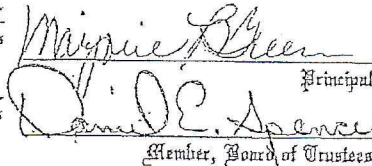 Marjorie B Green
Principal
Daniel E. Spence
Member, Board of Trustees